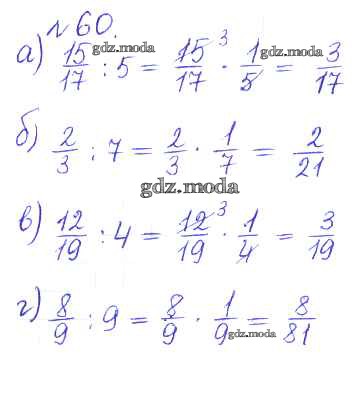 № 60.
а) 15/17 : 5 = 15/17 · 1/5 = 3/17
gdz.moda gdz.moda
3
б) 2/3 : 7 = 2/3 · 1/7 = 2/21
gdz.moda
в) 12/19 : 4 = 12/19 · 1/4 = 3/19
3
г) 8/9 : 9 = 8/9 · 1/9 = 8/81
gdz.moda